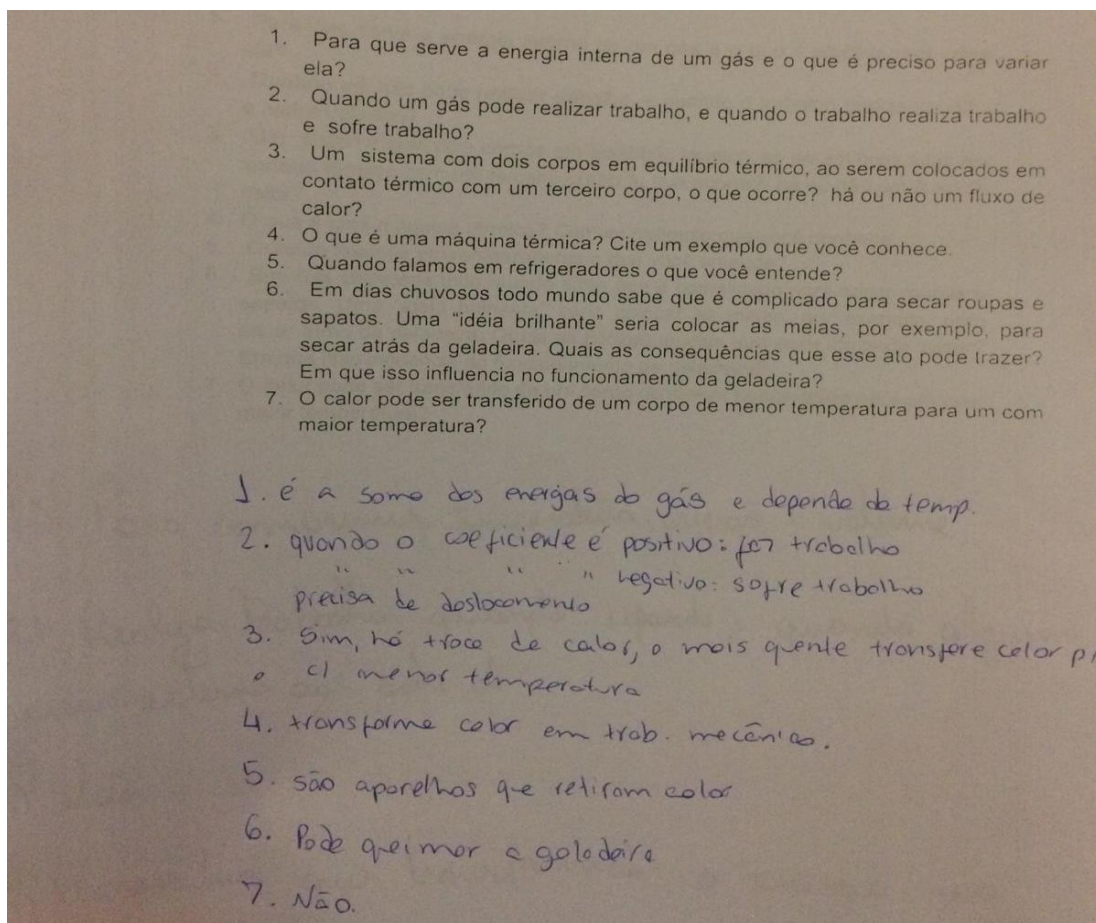 1. Para que serve a energia interna de um gás e o que é preciso para variar
ela?
2. Quando um gás pode realizar trabalho, e quando o trabalho realiza trabalho
e sofre trabalho?
3. Um sistema com dois corpos em equilíbrio térmico, ao serem colocados em
contato térmico com um terceiro corpo, o que ocorre? há ou não um fluxo de
calor?
4. O que é uma máquina térmica? Cite um exemplo que você conhece.
5. Quando falamos em refrigeradores o que você entende?
6. Em dias chuvosos todo mundo sabe que é complicado para secar roupas e
sapatos. Uma “idéia brilhante” seria colocar as meias, por exemplo, para
secar atrás da geladeira. Quais as consequências que esse ato pode trazer?
Em que isso influencia no funcionamento da geladeira?
7. O calor pode ser transferido de um corpo de menor temperatura para um com
maior temperatura?
1. é a soma das energias do gás e depende da temp.
2. quando o coeficiente é positivo: faz trabalho
" " " " negativo: sofre trabalho
precisa de deslocamento
3. Sim, há troca de calor, o mais quente transfere calor p/
o c/ menor temperatura
4. transforma calor em trab. mecânico.
5. são aparelhos que retiram calor
6. Pode queimar a geladeira
7. Não.